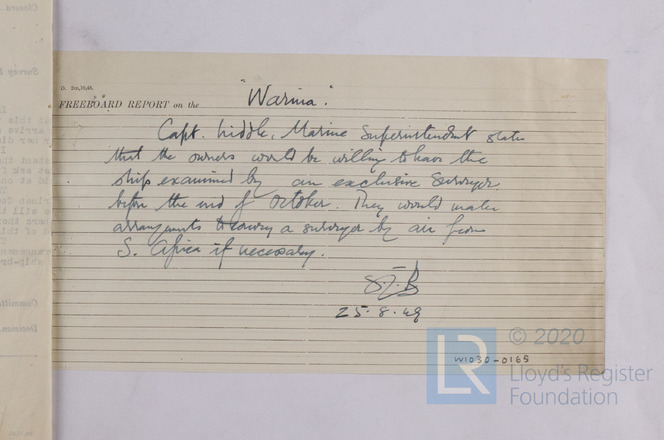 FREEBOARD REPORT on the "Warina".
Capt. Liddle, Marine Superintendent states
that the owners would be willing to have the
ships examined by an exclusive Surveyor
before the end of October. They would make
arrangements to convey a surveyor by air from
S. Africa if necessary.
25.8.49
W1030-0165
LR
© 2020
Lloyd's Register
Foundation
Closed
Survey
Committee
Decision